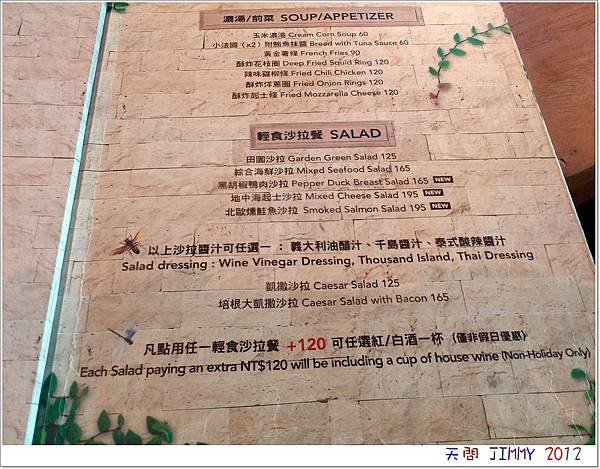 濃湯/前菜 SOUP/APPETIZER
玉米濃湯 Cream Corn Soup 60
小法國 (x2) 附鮪魚抹醬 Bread with Tuna Sauce 60
黃金薯條 French Fries 90
酥炸花枝圈 Deep Fried Squid Ring 120
辣味雞柳條 Fried Chili Chicken 120
酥炸洋蔥圈 Fried Onjon Rings 120
酥炸起士條 Fried Mozzarella Cheese 120
輕食沙拉餐 SALAD
田園沙拉 Garden Green Salad 125
綜合海鮮沙拉 Mixed Seafood Salad 165
黑胡椒鴨肉沙拉 Pepper Duck Breast Salad 165 NEW
地中海起士沙拉 Mixed Cheese Salad 195 NEW
北歐燻鮭魚沙拉 Smoked Salmon Salad 195 NEW
以上沙拉醬汁可任選一 : 義大利油醋汁、千島醬汁、泰式酸辣醬汁
Salad dressing : Wine Vinegar Dressing, Thousand Island, Thai Dressing
凱撒沙拉 Caesar Salad 125
培根大凱撒沙拉 Caesar Salad with Bacon 165
凡點用任一輕食沙拉餐 +120 可任選紅/白酒一杯 (僅非假日優惠)
Each Salad paying an extra NT$120 will be including a cup of house wine (Non-Holiday Only)
天閣 JIMMY 2012